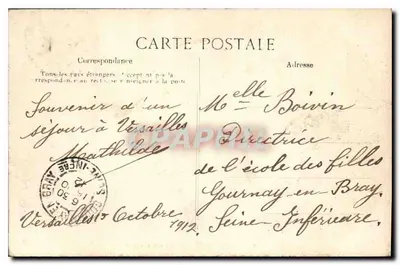 CARTE POSTALE
Correspondance
Tous les pays étrangers n'acceptent pas la
correspondance au recto se renseigner à la poste
Adresse
Souvenir d'un
séjour à Versailles
Mathilde
Versailles 17 Octobre 1912
Melle Boivin
Directrice
de l'école des filles
Gournay-en-Bray
Seine Inférieure